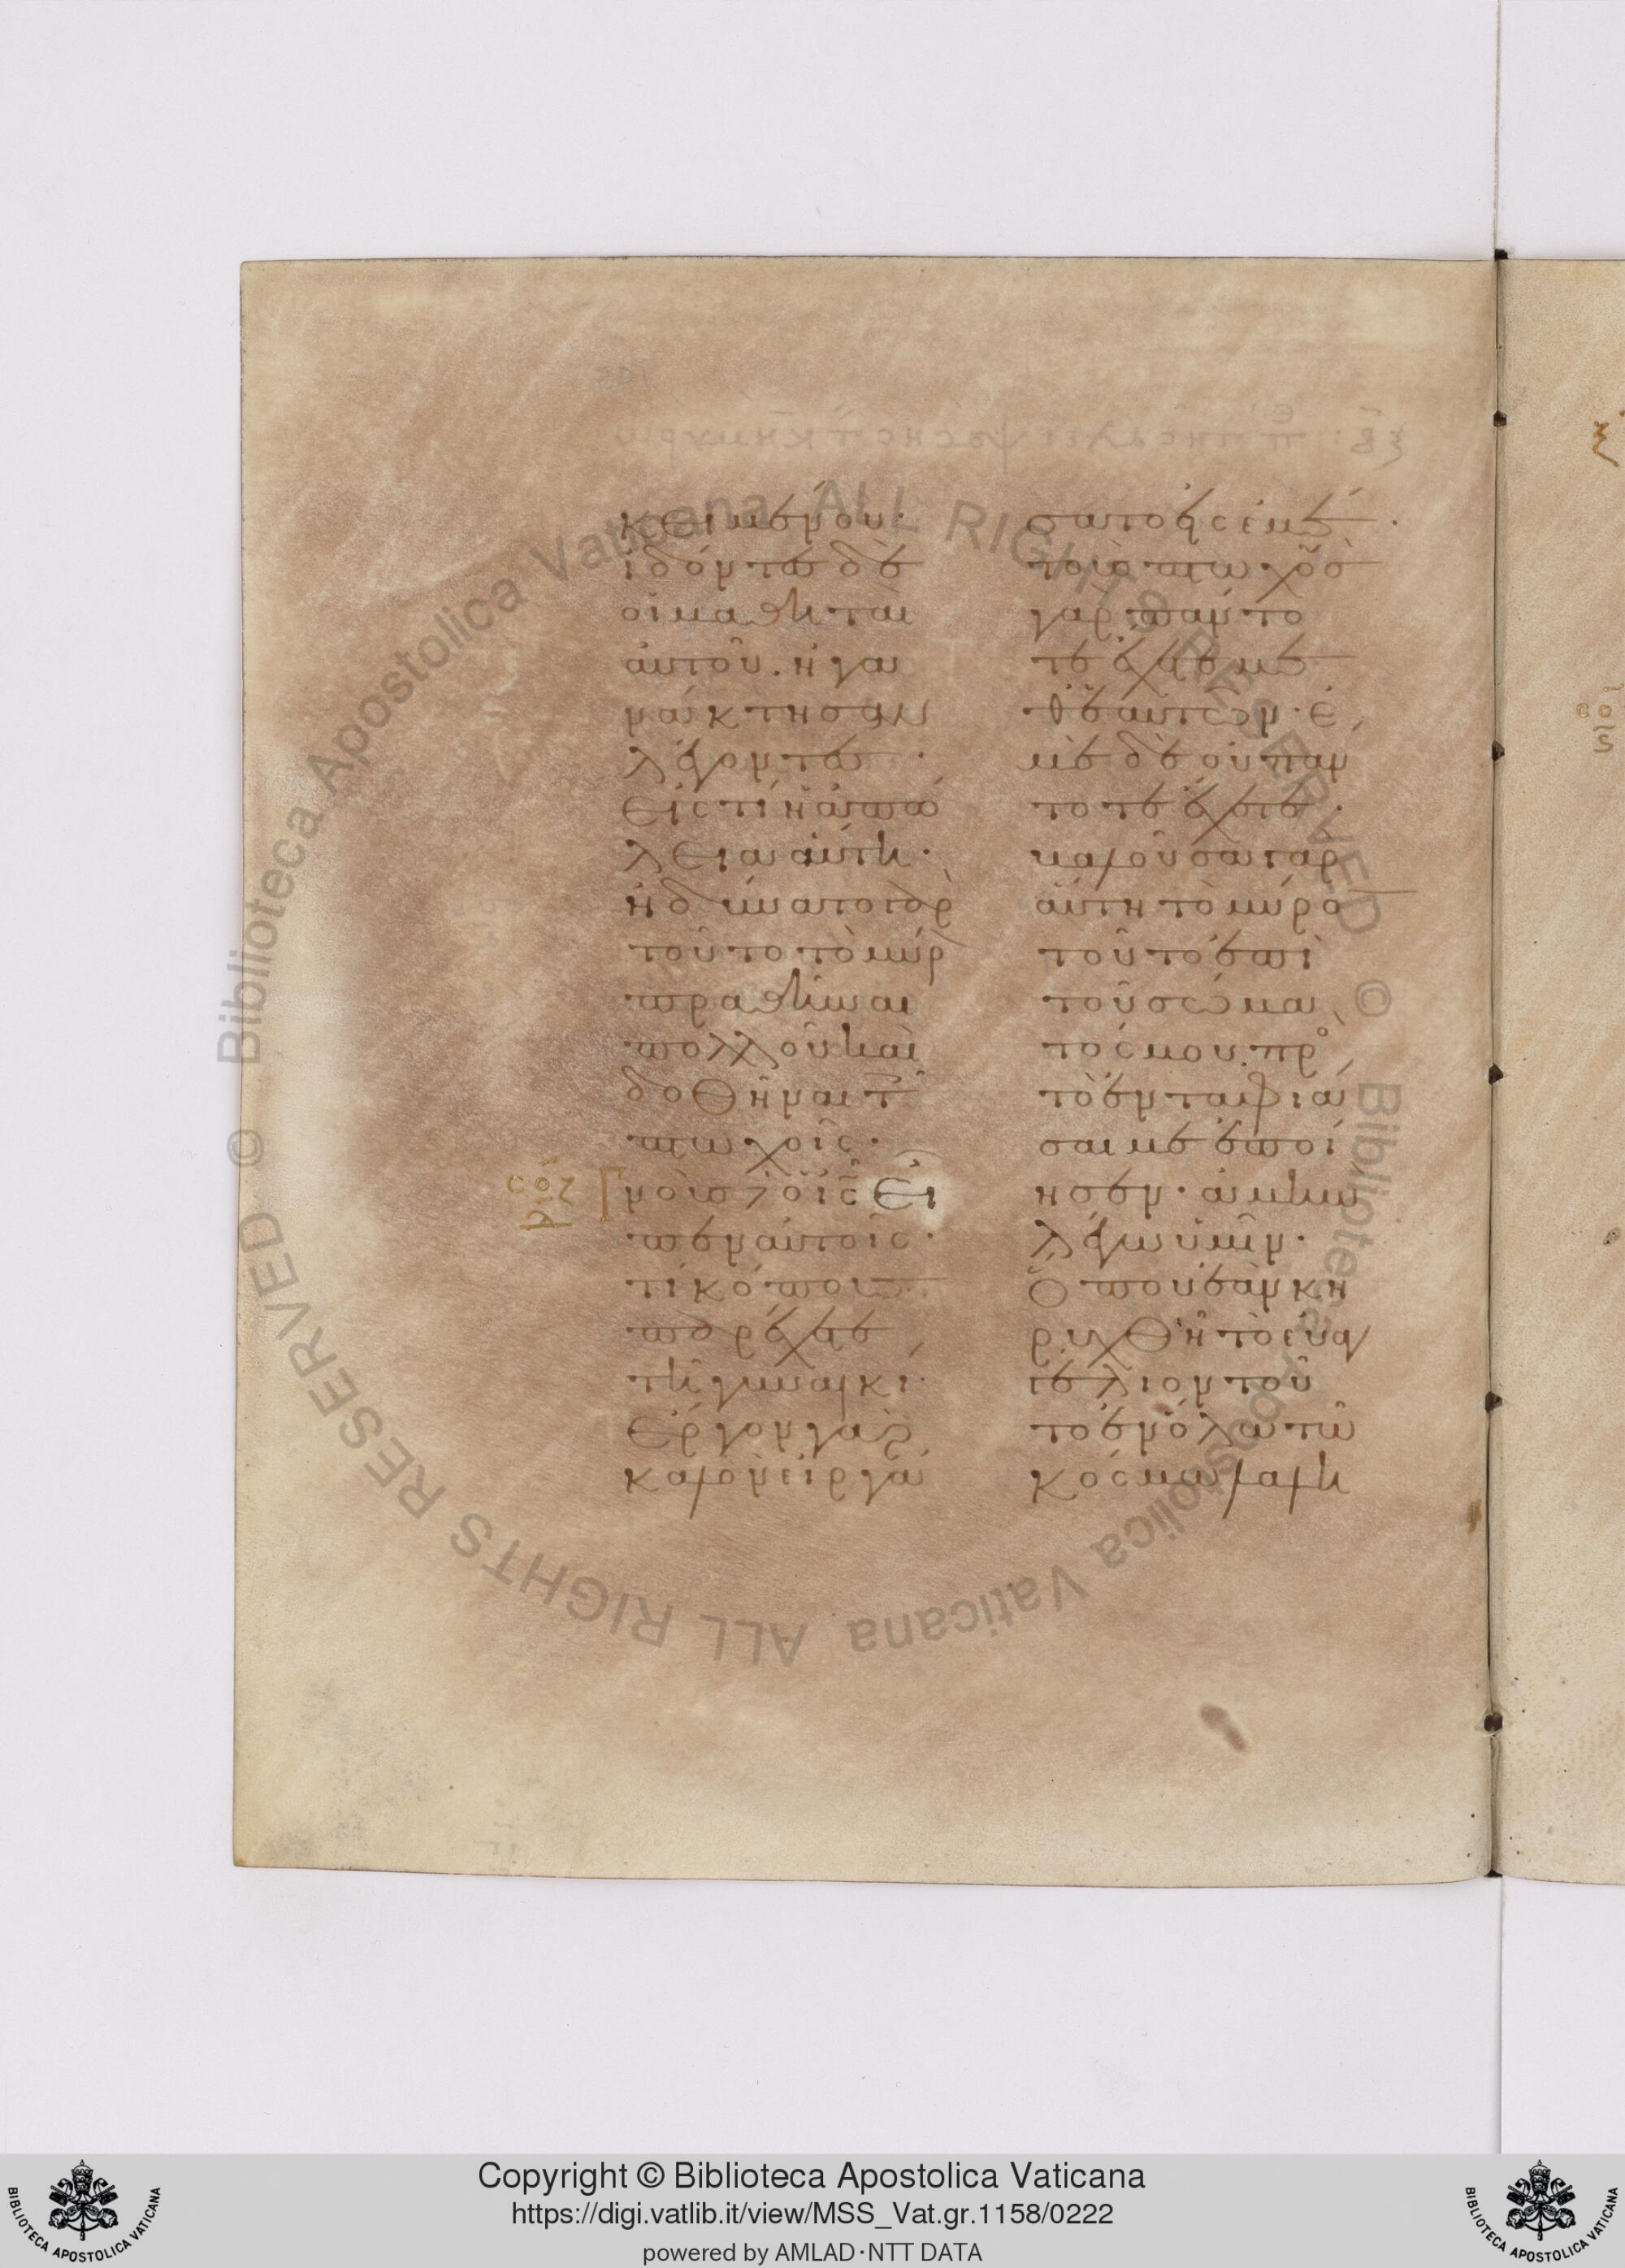 κειμένου·
ἰδόντες δὲ
οἱ μαθηταὶ
αὐτοῦ. ἠγα
νάκτησαν
λέγοντες·
εἰς τί ἡ ἀπώ
λεια αὕτη·
ἠδύνατο γὰρ
τοῦτο τὸ μύρον
πραθῆναι
πολλοῦ καὶ
δοθῆναι τοῖς
πτωχοῖς·
γνοὺς ὁ ἰς εἶ
πεν αὐτοῖς·
τί κόπους
παρέχετε
τῇ γυναικί·
ἔργον γὰρ
καλὸν εἰργά
σατο εἰς ἐμέ·
τοὺς πτωχοὺς
γὰρ πάντο
τε ἔχετε μεθ
ἑαυτῶν· ἐ
μὲ δὲ οὐ πάν
τοτε ἔχετε·
βαλοῦσα γὰρ
αὕτη τὸ μύρον
τοῦτο ἐπὶ
τοῦ σώμα
τός μου πρὸς
τὸ ἐνταφιά
σαι με ἐποί
ησεν· ἀμὴν
λέγω ὑμῖν·
ὅπου ἐὰν κη
ρυχθῇ τὸ εὐαγ
γέλιον τοῦ
το ἐν ὅλῳ τῷ
κόσμῳ λαλη
Copyright © Biblioteca Apostolica Vaticana
https://digi.vatlib.it/view/MSS_Vat.gr.1158/0222
powered by AMLAD·NTT DATA
© Biblioteca Apostolica Vaticana ALL RIGHTS RESERVED © Biblioteca Apostolica Vaticana ALL RIGHTS RESERVED
BIBLIOTECA APOSTOLICA VATICANA
BIBLIOTECA APOSTOLICA VATICANA